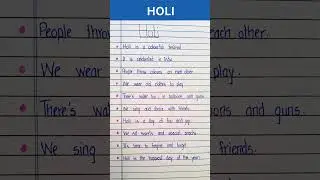 HOLI
Holi
Holi is a colourful festival.
It is celebrated in India.
People throw colours on each other.
We wear old clothes to play.
There's water too, in balloons and guns.
We sing and dance with friends.
Holi is a day of fun and joy.
We eat sweets and special snacks.
It's time to forgive and forget.
Holi is the happiest day of the year.
People throw
each other.
We wear
play.
There's
and guns.
We sing
friends.